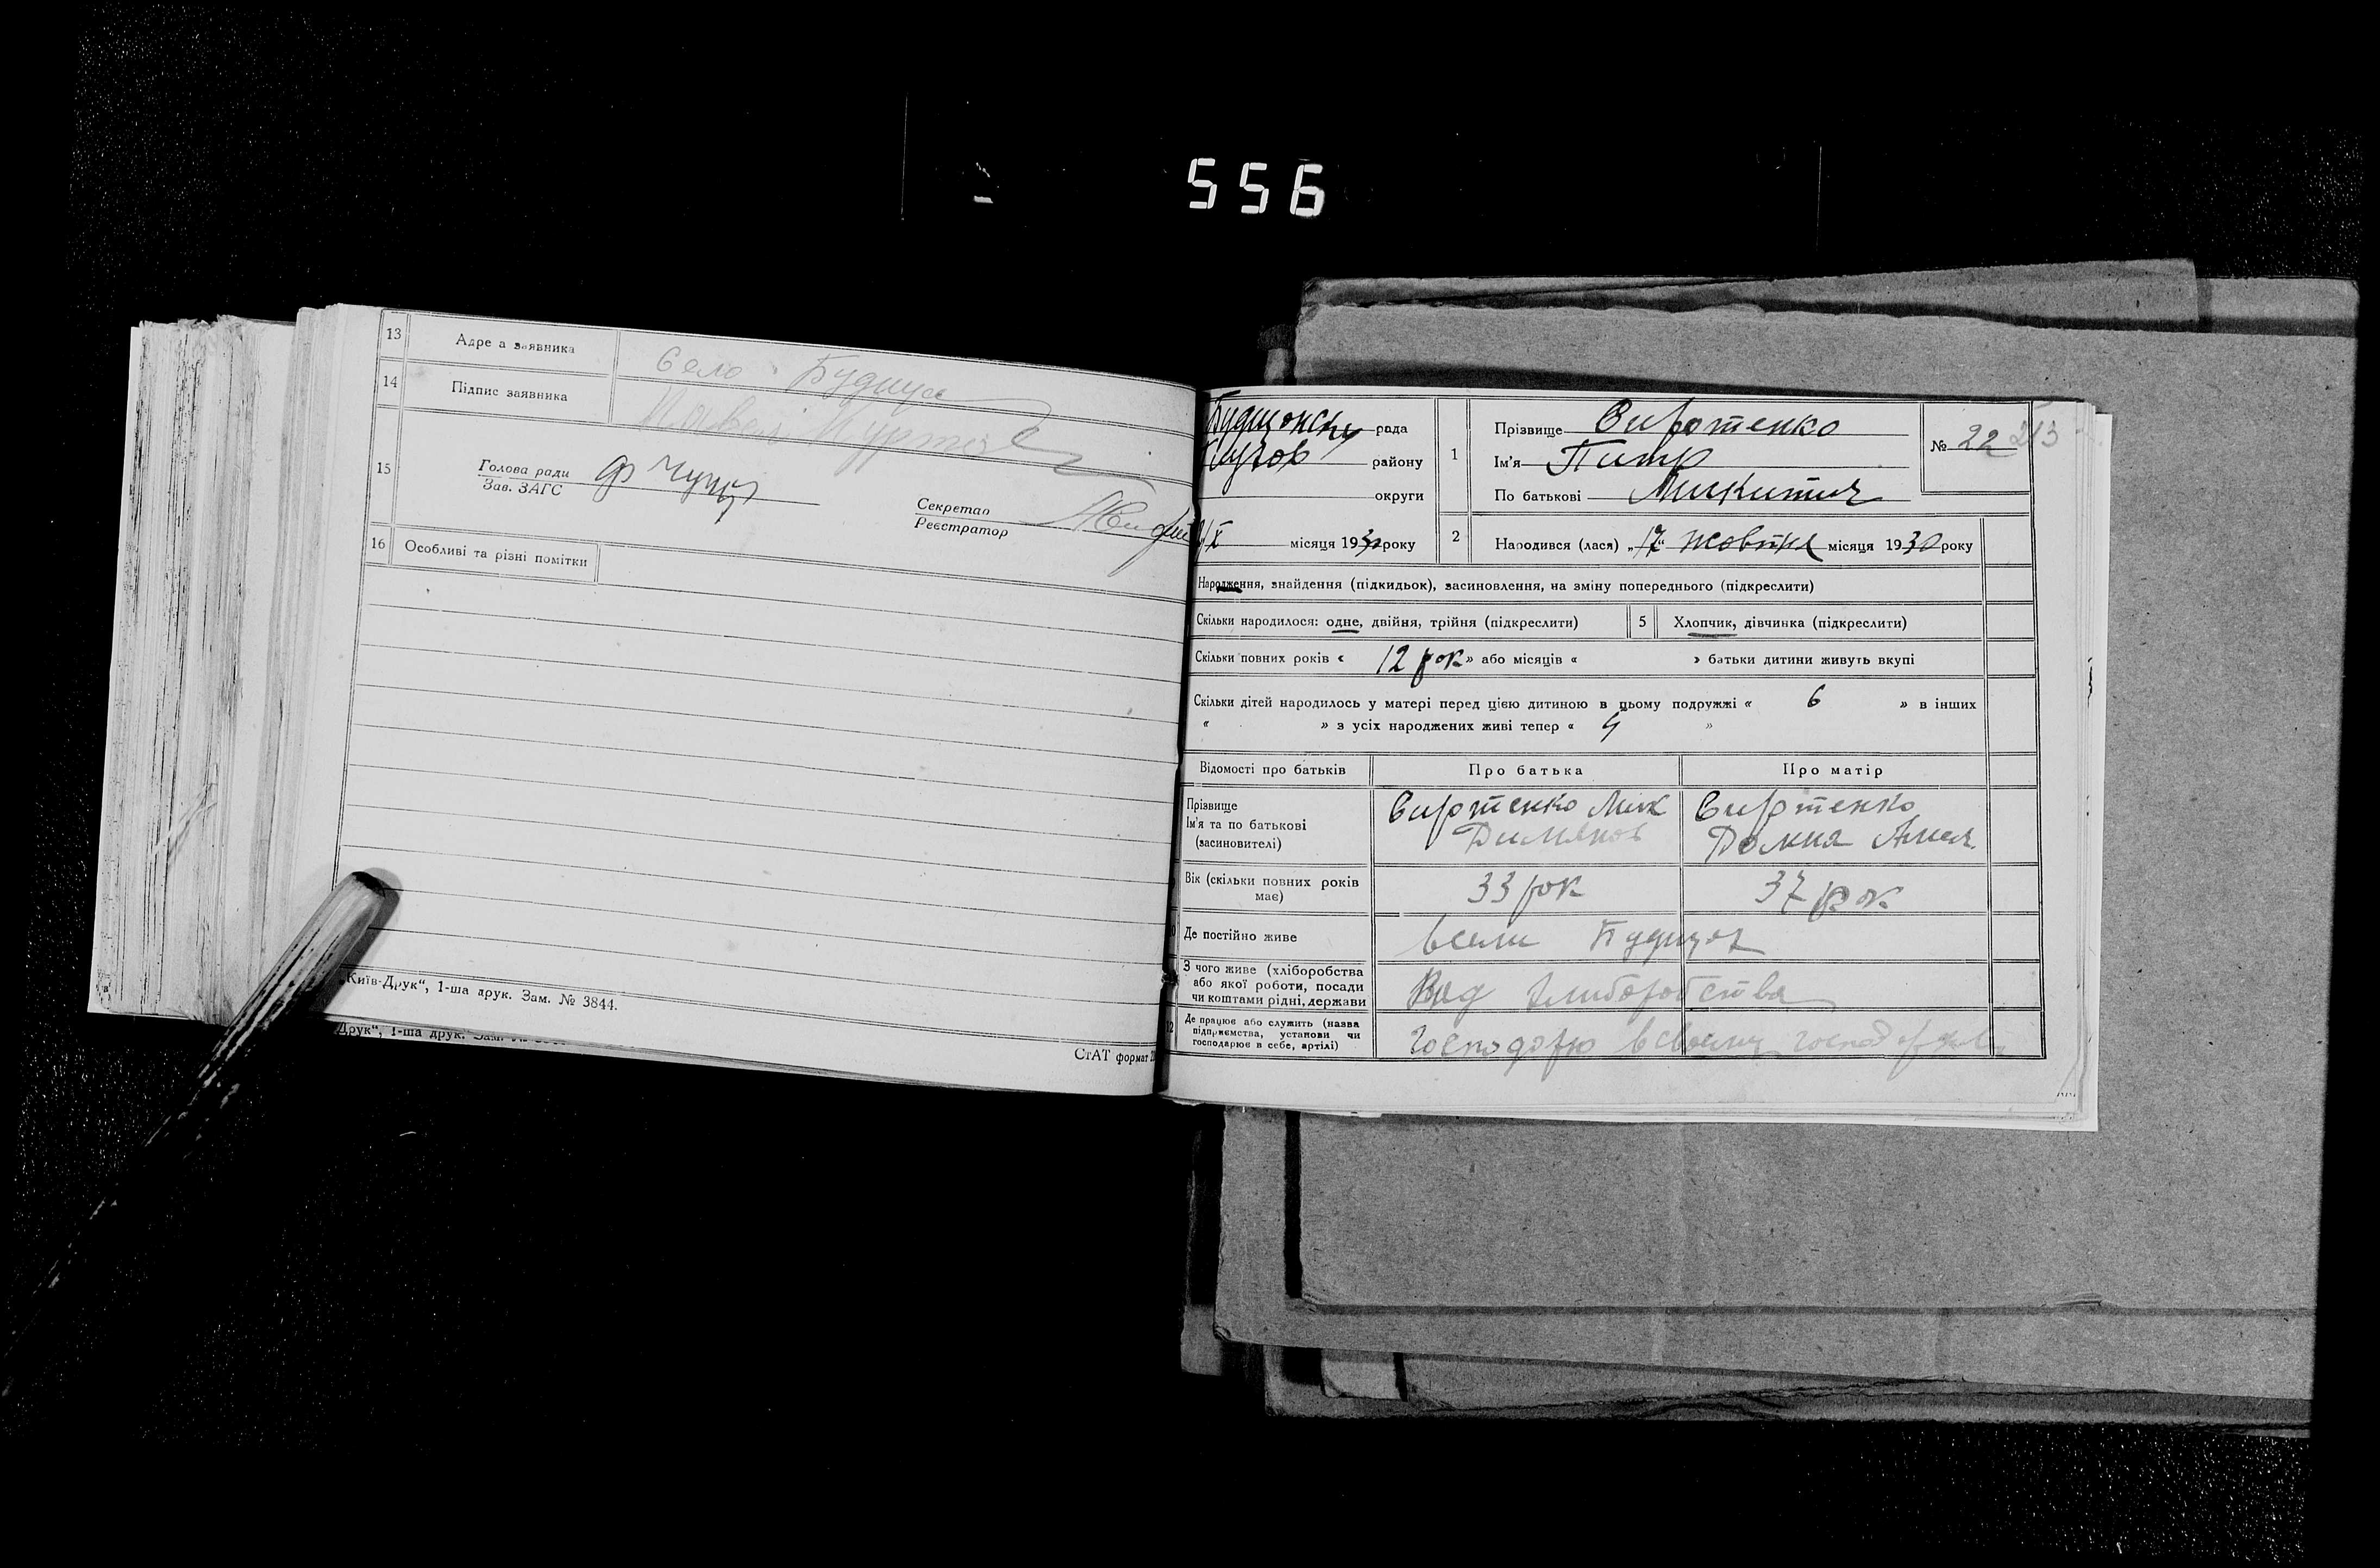 556
13 Адре а заявника Село Будища
14 Підпис заявника Павел
15 Голова ради
Зав. ЗАГС
Секретар
Реєстратор
16 Особливі та різні помітки
„Київ-Друк“, 1-ша друк. Зам. № 3844.
Друк“, 1-ша друк. Зам.
СтАТ формат
рада
району
округи
X місяця 1930 року
1 Прізвище Сиротенко
Ім'я Питр
По батькові Микитич
№ 22 213
2 Народився (лася) „17“ жовтня місяця 1930 року
Народження, знайдення (підкидьок), засиновлення, на зміну попереднього (підкреслити)
Скільки народилося: одне, двійня, трійня (підкреслити) 5 Хлопчик, дівчинка (підкреслити)
Скільки повних років « 12 рок » або місяців « » батьки дитини живуть вкупі
Скільки дітей народилось у матері перед цією дитиною в цьому подружжі « 6 » в інших
« » з усіх народжених живі тепер « 4 »
Відомості про батьків Про батька Про матір
Прізвище
Ім'я та по батькові
(засиновителі)
Сиротенко Мик
Сиротенко
Домна
Вік (скільки повних років
має)
33 рок 37 рок
Де постійно живе
в сели Будищах
З чого живе (хліборобства
або якої роботи, посади
чи коштами рідні, держави
Вид хлиборобства
12 Де працює або служить (назва
підприємства, установи чи
господарює в себе, артілі)
Господорю в своему